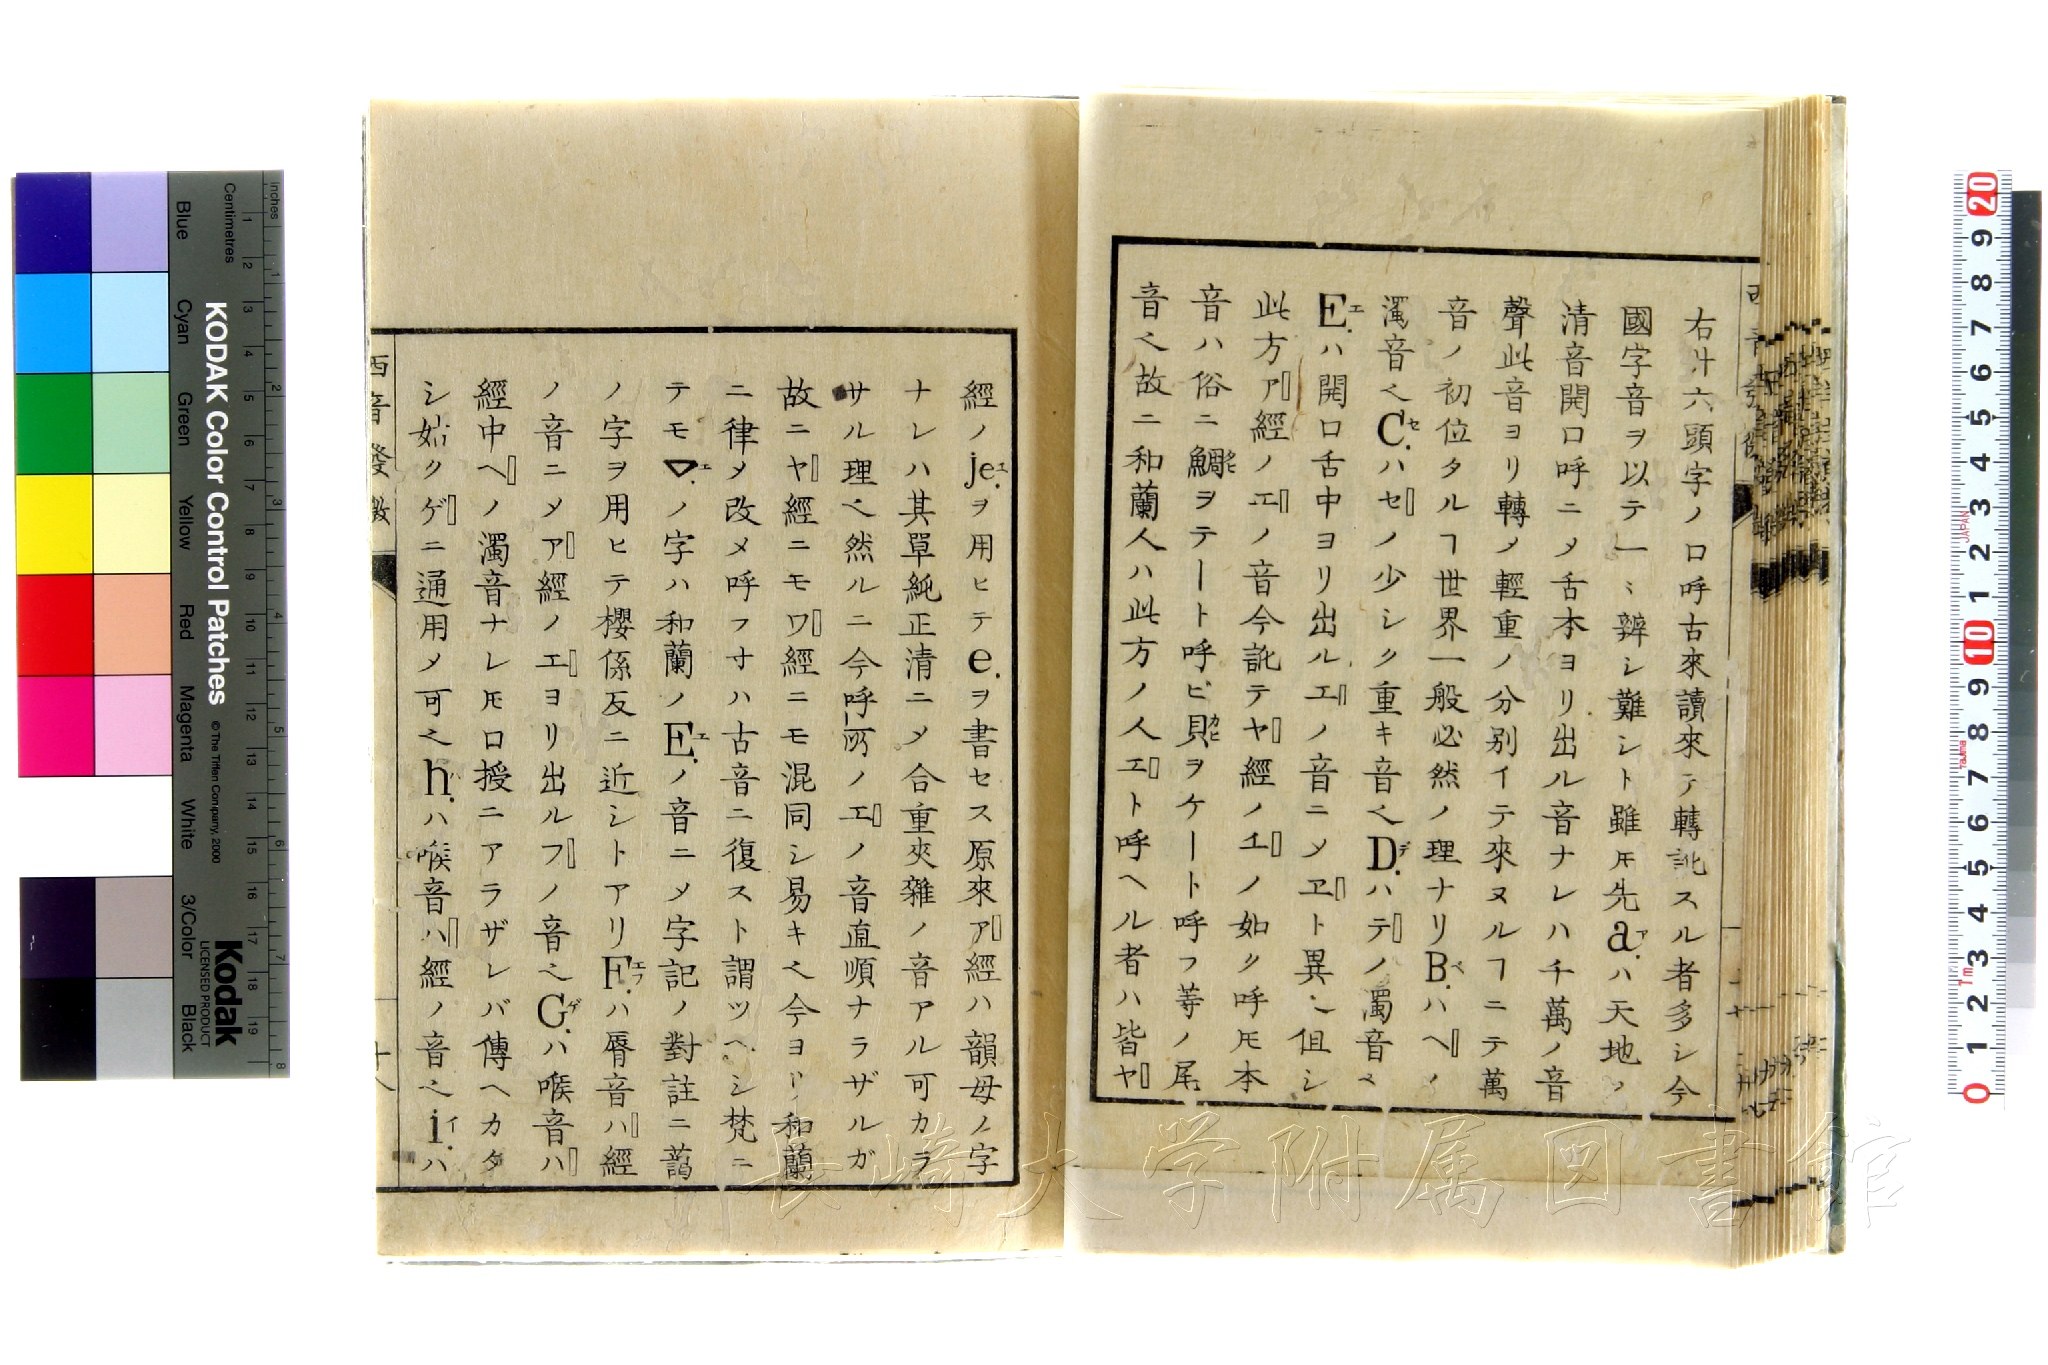 右廾六頭字ノ口呼古來讀來テ轉訛スル者多シ今
國字音ヲ以テ一ミ辨シ難シト雖𪜈先a.ハ天地ノ
清音開口呼ニメ舌本ヨリ出ル音ナレハ千萬ノ音
聲此音ヨリ轉ノ輕重ノ分別イテ來ヌルヿニテ萬
音ノ初位タルヿ世界一般必然ノ理ナリB.ハヘノ
濁音也C.ハセノ少シク重キ音也D.ハテノ濁音也
E.ハ開口舌中ヨリ出ルエノ音ニメヱト異也但シ
此方ア經ノエノ音今訛テヤ經ノエノ如ク呼𪜈本
音ハ俗ニ鯛ヲテート呼ビ貝ヲケート呼フ等ノ尾
音也故ニ和蘭人ハ此方ノ人エト呼ヘル者ハ皆ヤ
經ノje.ヲ用ヒテe.ヲ書セス原來ア經ハ韻母ノ字
ナレハ其單純正清ニメ合重夾雜ノ音アル可カラ
サル理也然ルニ今呼所ノエノ音直順ナラザルガ
故ニヤ經ニモワ經ニモ混同シ易キ也今ヨリ和蘭
ニ律メ改メ呼フ寸ハ古音ニ復スト謂ツヘシ梵ニ
テモノ字ハ和蘭ノE.ノ音ニメ字記ノ對註ニ藹
ノ字ヲ用ヒテ櫻係反ニ近シトアリF.ハ脣音ハ經
ノ音ニメア經ノエヨリ出ルフノ音也G.ハ喉音ハ
經中ヘノ濁音ナレ𪜈口授ニアラザレバ傳ヘカタ
シ姑クゲニ通用メ可也h.ハ喉音ハ經ノ音也i.ハ
西音發微
十八
長崎大学附属図書館
KODAK Color Control Patches
©The Tiffen Company, 2000
Kodak
LICENSED PRODUCT
Inches
Centimetres
Blue
Cyan
Green
Yellow
Red
Magenta
White
3/Color
Black
JAPAN